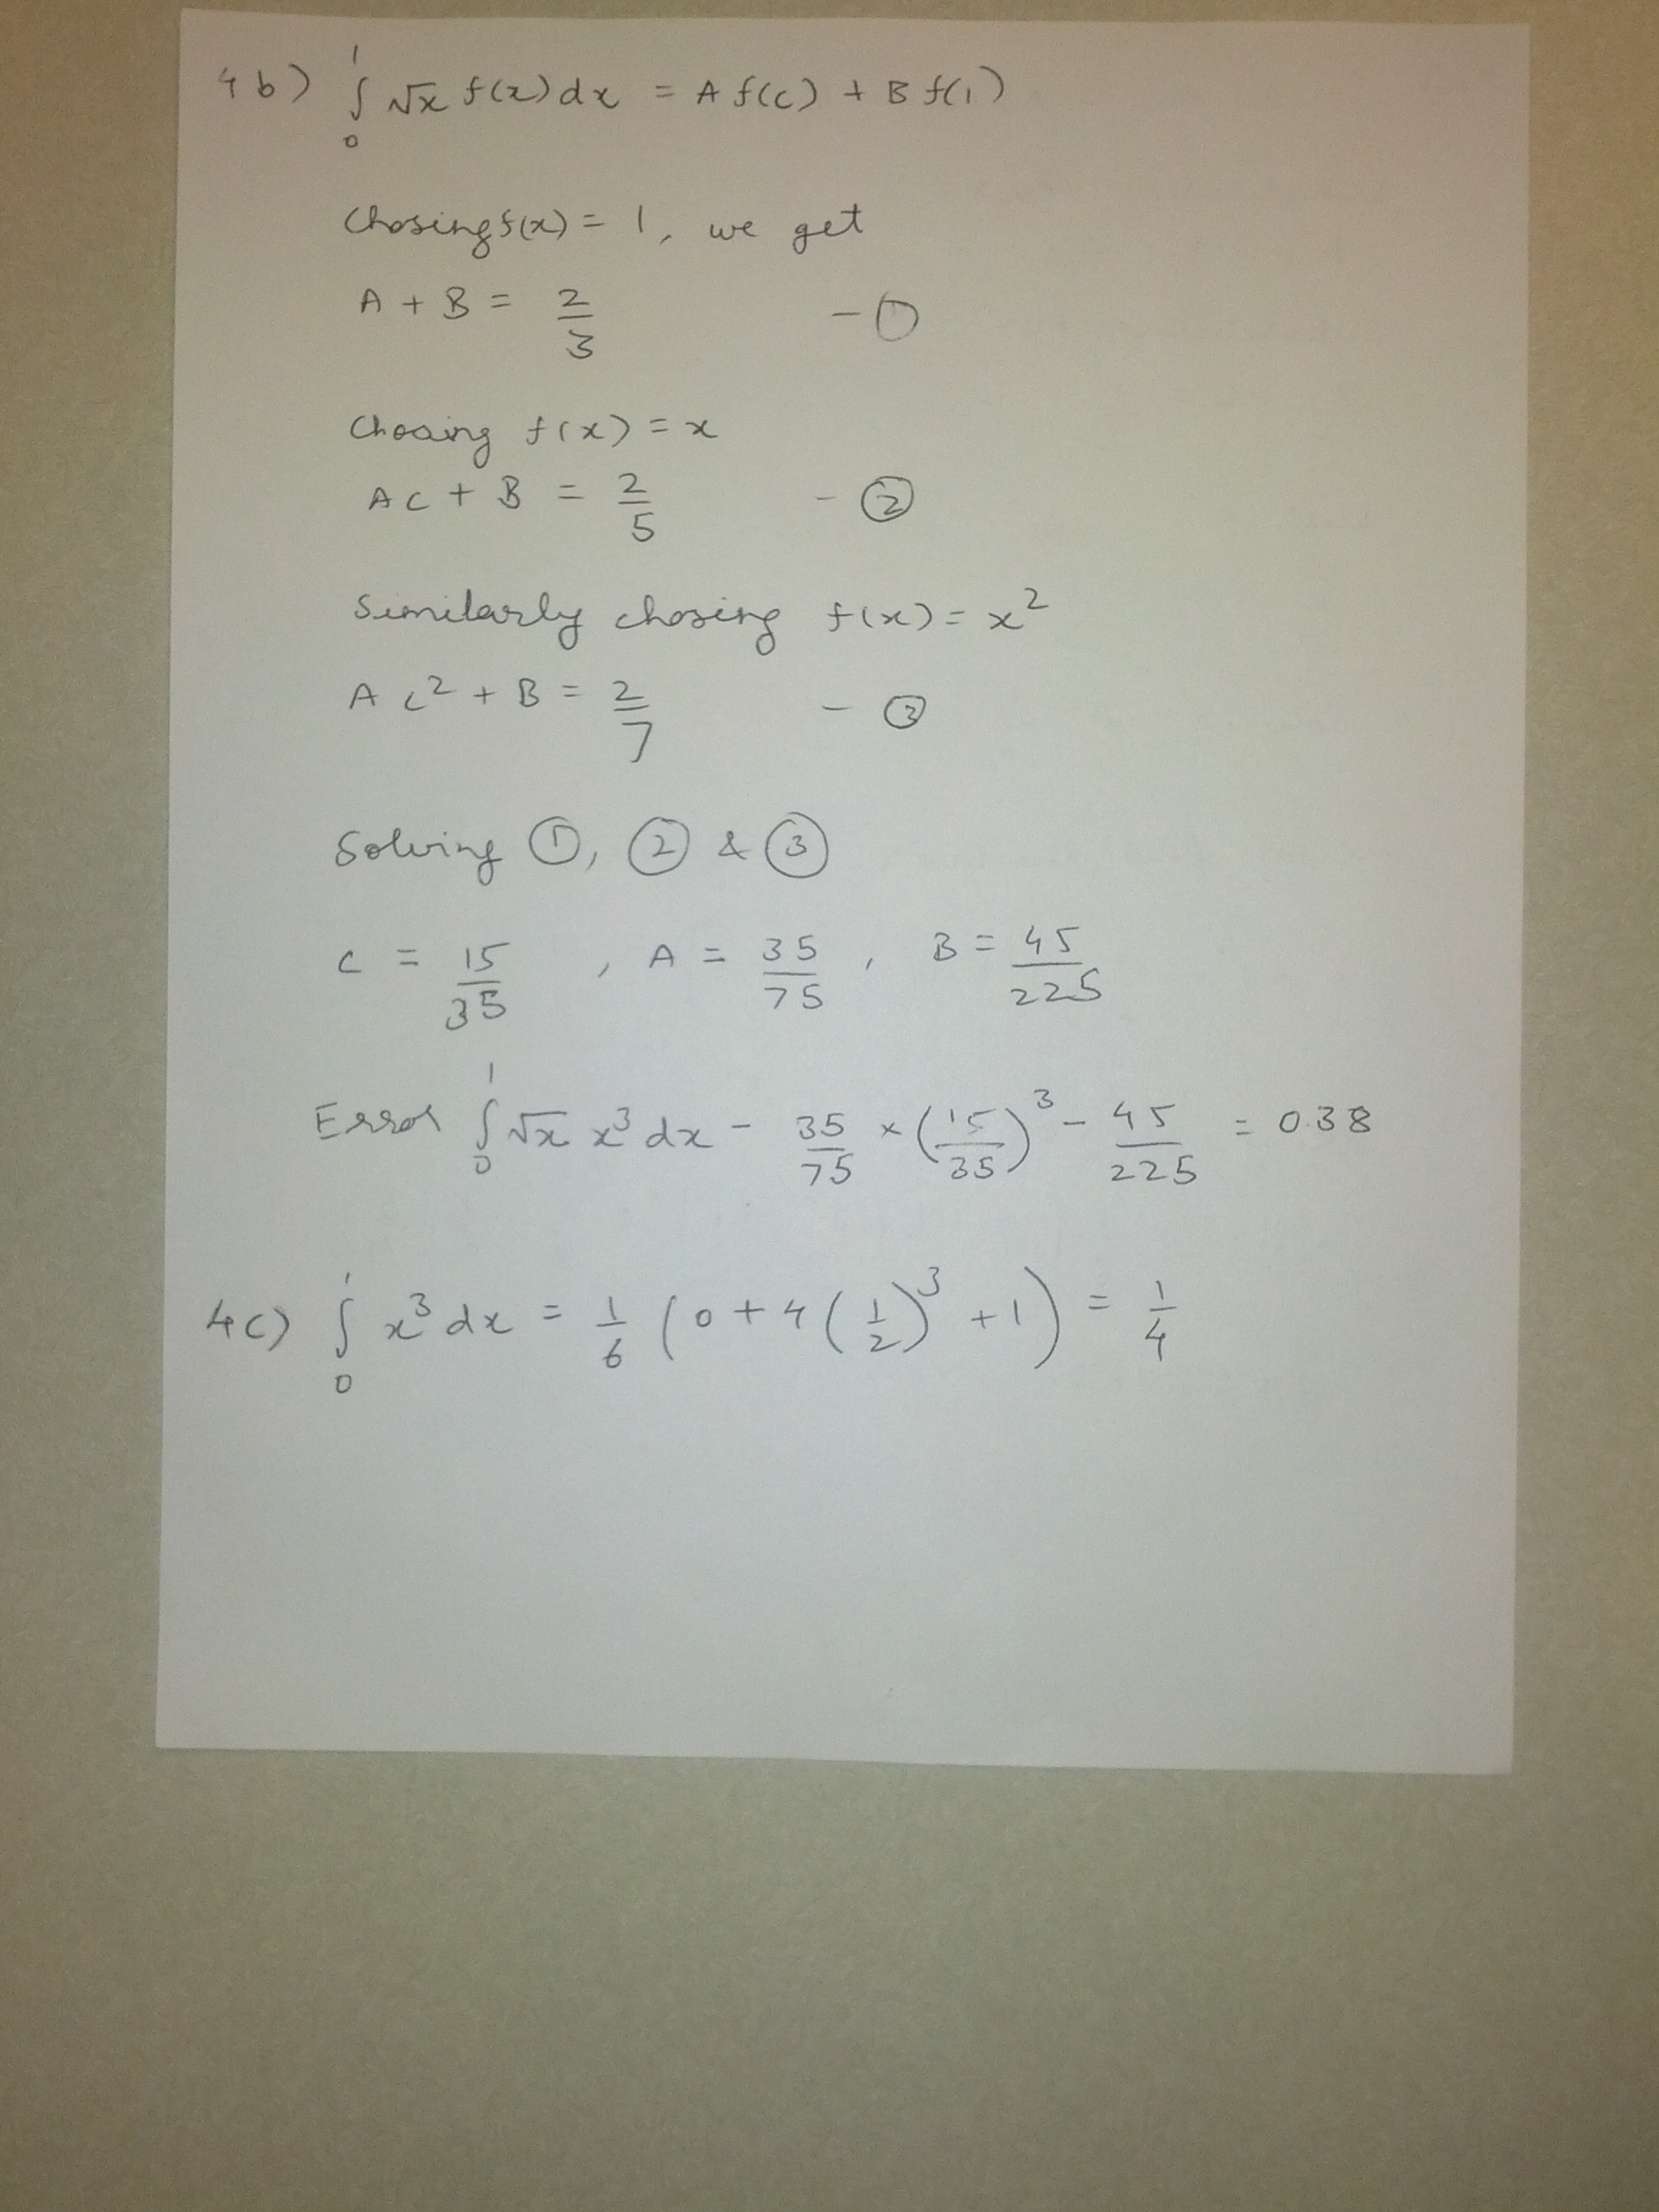 4 b) ∫₀¹ √x f(x) dx = A f(c) + B f(1)
Chosing f(x) = 1, we get
A + B = 2/3 - ①
Chosing f(x) = x
Ac + B = 2/5 - ②
Similarly chosing f(x) = x²
A c² + B = 2/7 - ③
Solving ①, ② & ③
c = 15/35 , A = 35/75 , B = 45/225
Error ∫₀¹ √x x³ dx - 35/75 × (15/35)³ - 45/225 = 0.38
4c) ∫₀¹ x³ dx = 1/6 (0 + 4 (1/2)³ + 1) = 1/4